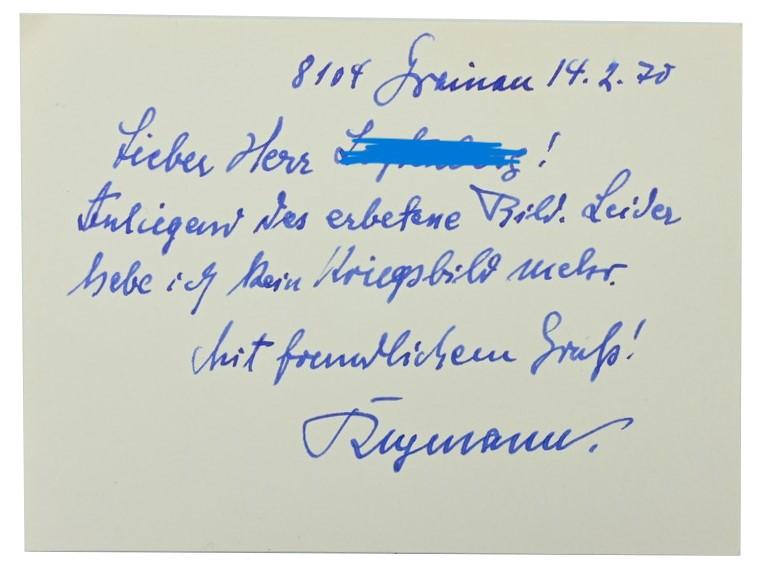 8104 Grainau 14.2.70
Lieber Herr !
Anliegend das erbetene Bild. Leider
habe ich kein Kriegsbild mehr.
Mit freundlichem Gruß!
Reymann.